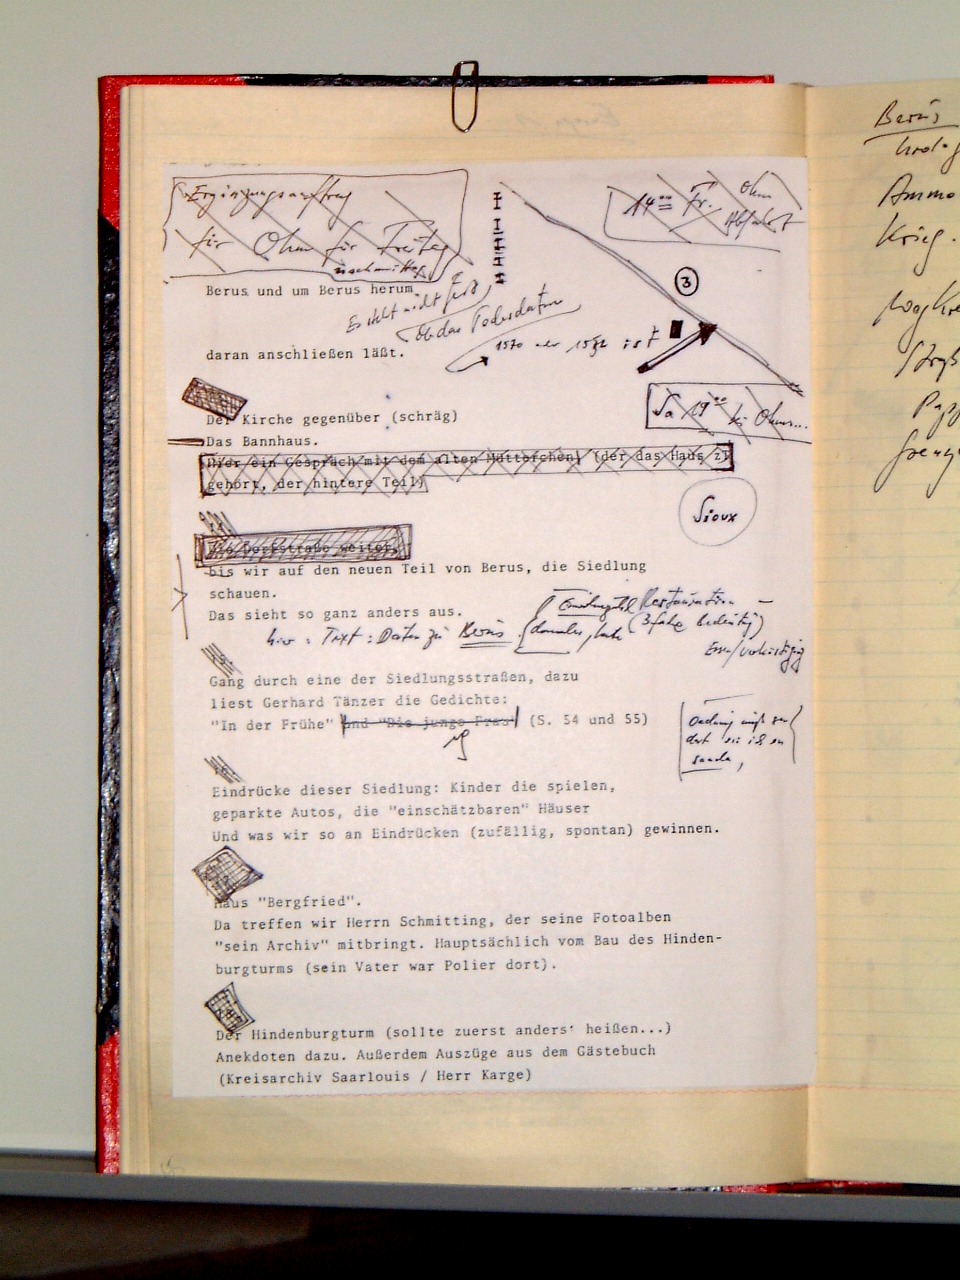 Ergänzungsauftrag
für Ohm für Freitag
nachmittag
14 00 Fr. Ohm
Abfahrt
3
Berus und um Berus herum
Es steht nicht fest
ob das Todesdatum
1570 oder ist
daran anschließen läßt.
Sa 19 00
Der Kirche gegenüber (schräg)
Das Bannhaus.
Hier ein Gespräch mit dem alten Mütterchen, (der das Haus zu
gehört, der hintere Teil)
Sioux
Die Dorfstraße weiter,
bis wir auf den neuen Teil von Berus, die Siedlung
schauen.
Das sieht so ganz anders aus.
Restauration
hier: Text: Daten zu Berus
Gang durch eine der Siedlungsstraßen, dazu
liest Gerhard Tänzer die Gedichte:
"In der Frühe" und "Die junge Frau" (S. 54 und 55)
Eindrücke dieser Siedlung: Kinder die spielen,
geparkte Autos, die "einschätzbaren" Häuser
Und was wir so an Eindrücken (zufällig, spontan) gewinnen.
Haus "Bergfried".
Da treffen wir Herrn Schmitting, der seine Fotoalben
"sein Archiv" mitbringt. Hauptsächlich vom Bau des Hinden-
burgturms (sein Vater war Polier dort).
Der Hindenburgturm (sollte zuerst anders heißen...)
Anekdoten dazu. Außerdem Auszüge aus dem Gästebuch
(Kreisarchiv Saarlouis / Herr Karge)
Berus
Krieg.